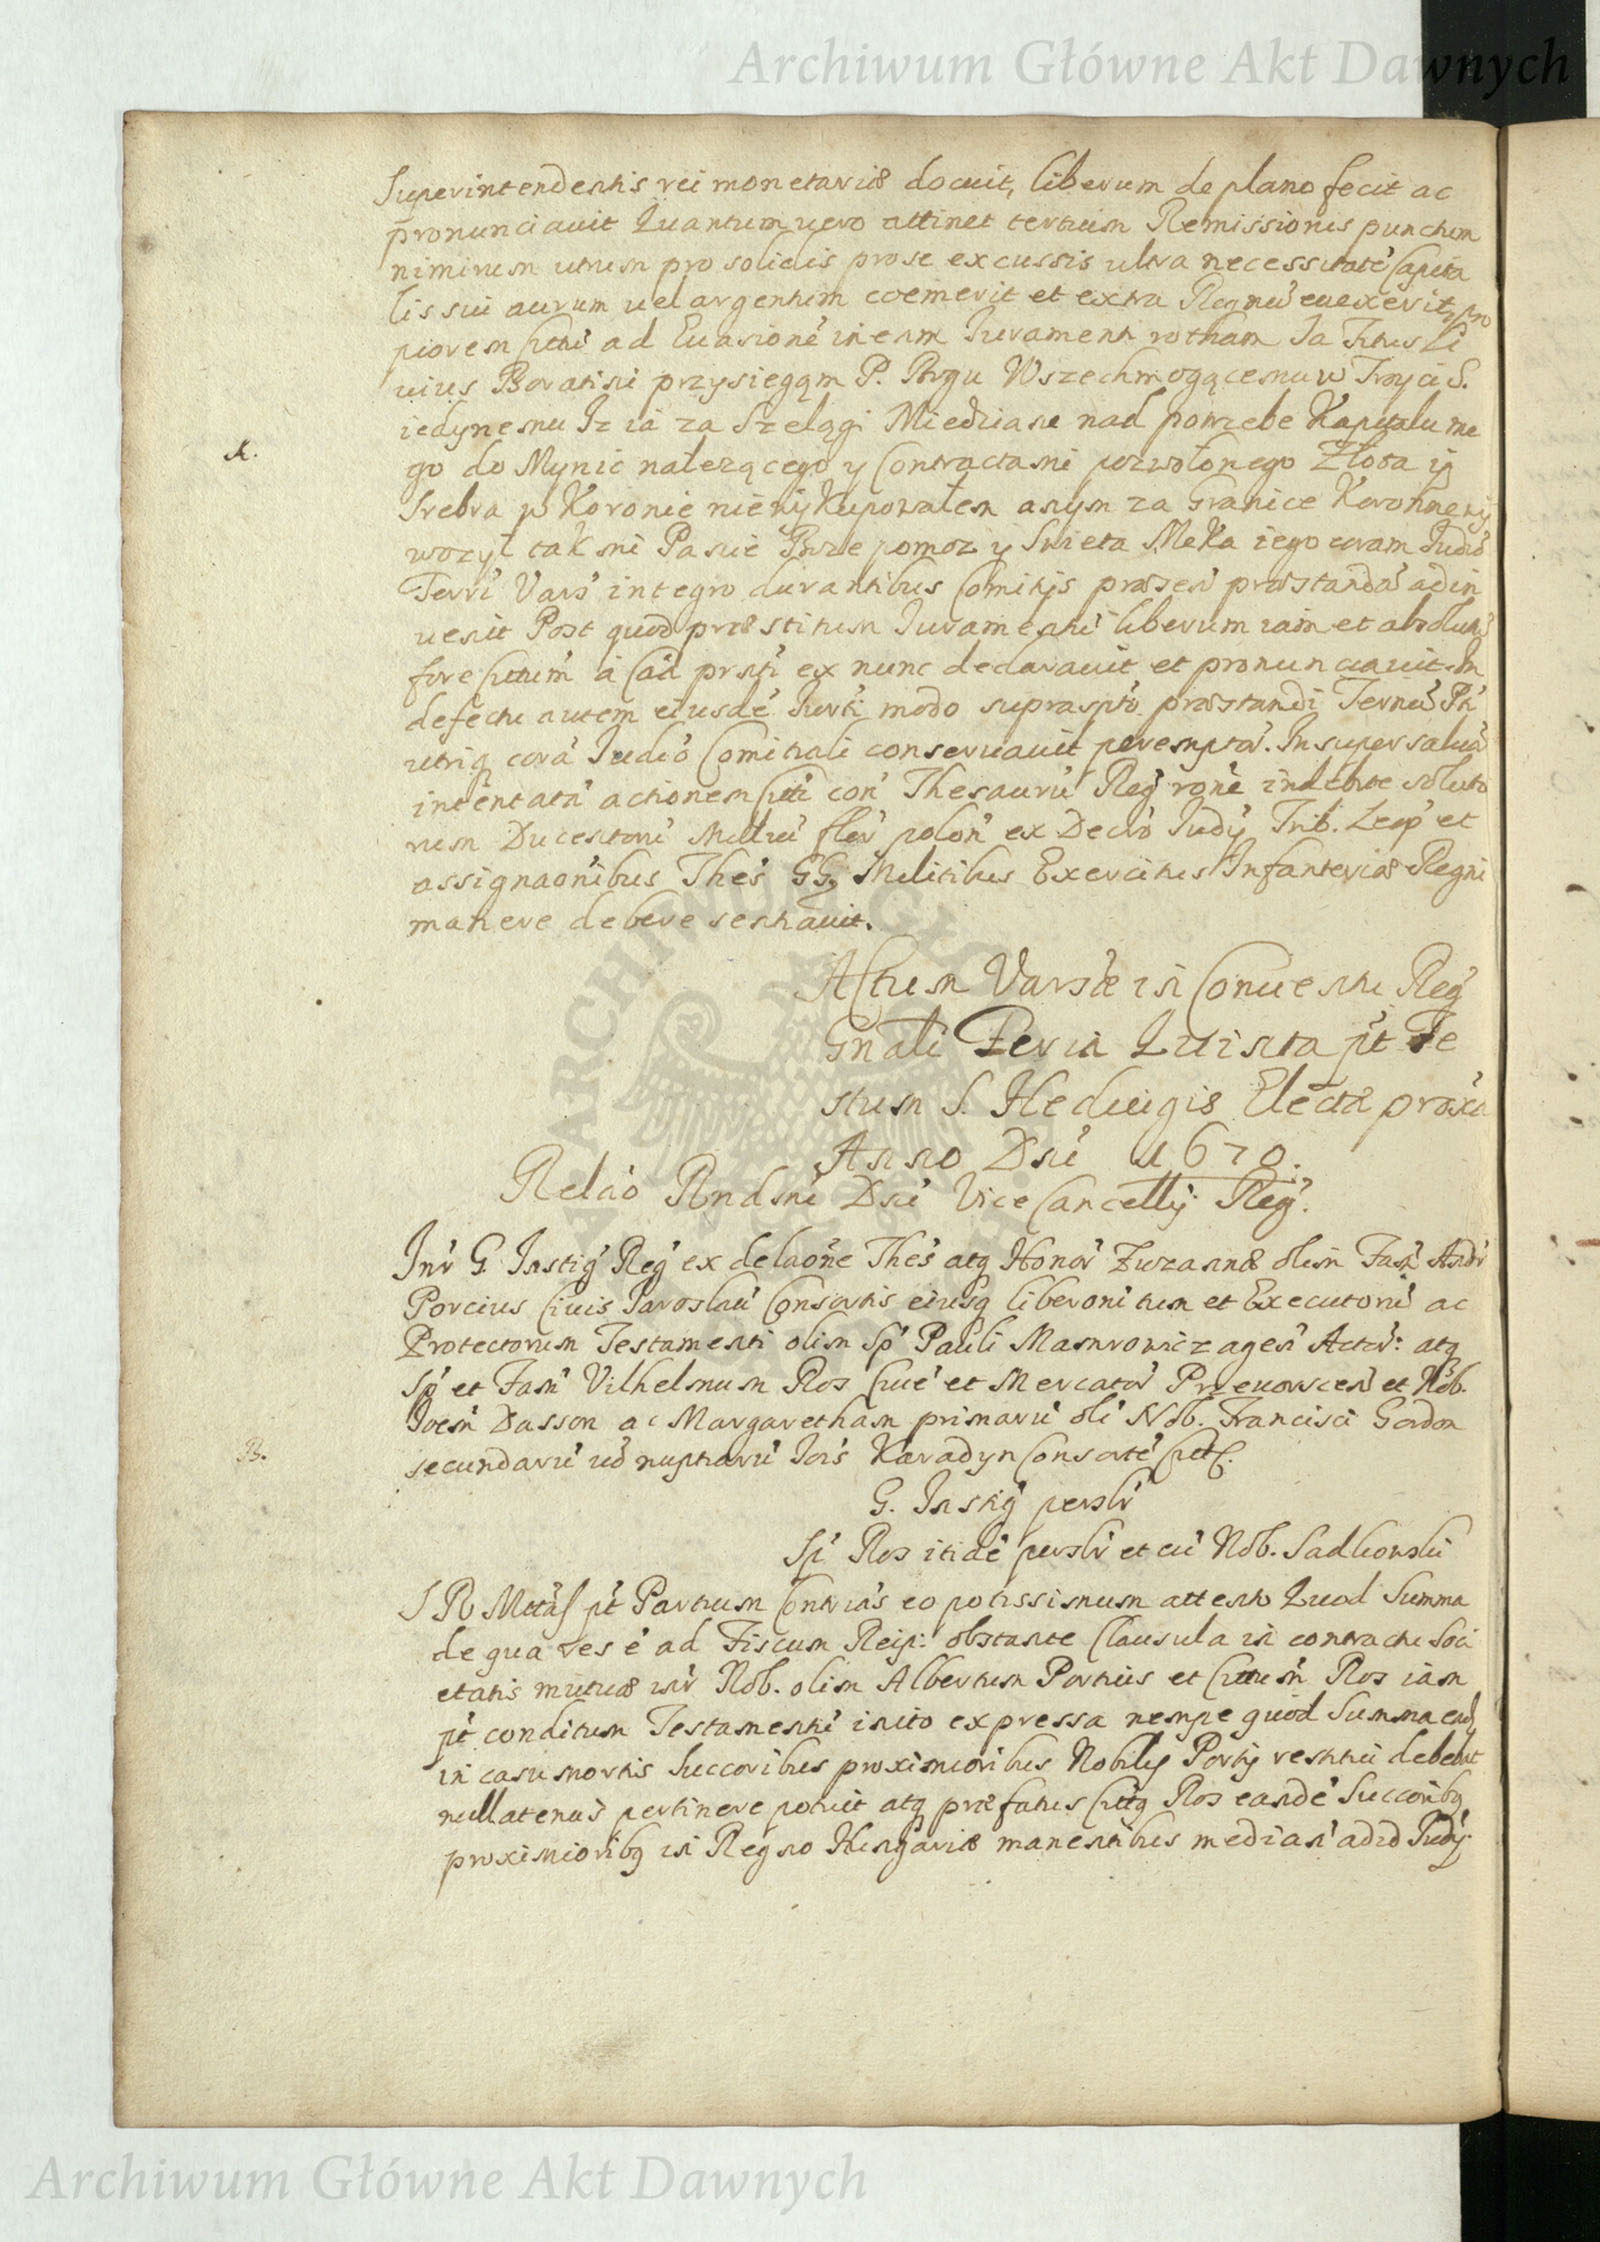 Archiwum Główne Akt Dawnych
Superintendentis rei monetariæ docuit, liberum de plano fecit ac
pronunciauit Quantum uero attinet tertium Remissionis punctum
nimirum utrum pro solidis pro se excussis ultra necessitatē Capita
lis sui aurum uel argentum coemerit et extra Regnū euexerit, pro
piorem Citti ad Euasionē in eam Iuramenti rotham Ia Titus Li
uius Boratini przysięgąm P. Bogu Wszechmogącemu w Troyci S.
iedynemu Iz ia za Szelągi Miedziane nad potrzebe Kapitalu me
A.
go do Mynic nalezącego y Contractami pozwolonego Złota y
Srebra w Koronie nie wykupowałem anym za Granice Koronne wy
wozył tak mi Panie Boze pomoz y Swieta Męka iego coram Iudio
Terri Vars integro durantibus Comitijs præsen præstandā adin
uenit Post quod præstitum Iuramenti liberum iam et absolut
fore Cittum à Cā prnti ex nunc declarauit et pronunciauit. In
defectu autem eiusdē Iurti modo suprascripto præstandi Ternū Pti
utriq corā Iudio Comitiali conseruauit peremptor. Insuper saluā
intentatā actionem Citti con Thesaurū Reg rone indebite soluto
rum Ducentorū Milliū flor polon ex Decro Iudÿ Trib. Leop et
assignaonibus Thes GG. Militibus Exercitus Infanteriæ Regni
manere debere sentiauit.
Actum Varsæ in Conuentu Reg
Gnali Feria Quinta pt Fe
stum S. Heduigis Electæ proxa
Anno Dni 1670.
Relao Rndmi Dni Vice Cancellÿ Reg.
Inr G. Instig Reg ex delaone Thes atq Honor Zuzannæ olim Fam Andr
Porcius Ciuis Iaroslau Consortis eiusq liberorū tum et Executorū ac
Protectorum Testamenti olim Sp Pauli Mamrowicz agen Actor: atq
Sp et Fam Vilhelmum Ros Ciue et Mercator Przeuorscen et Nob.
Ioem Dasson ac Margaretham primarū oli Nob. Francisci Gordon
B.
secundarū uo nuptiarū Iois Karadyn Consorte Citt.
G. Instig persłr
Sp Ros itide persłr et cū Nob. Sadkowski
S R Mttas pt Partium Contrias eo potissimum attento Quod Summa
de qua res e ad Fiscum Reip: obstante Clausula in contractu Soci
etatis mutuæ inr Nob. olim Albertum Portius et Cittum Ros iam
pt conditum Testamenti inito expressa nempe quod Summa ead
in casu mortis Succoribus proximioribus Nobilis Portÿ restitui debeat
nullatenus pertinere potuit atq præfatus Cittq Ros eande Succoribq
proximioribq in Regno Hungariæ manentibus median adid Iudÿ.
Archiwum Główne Akt Dawnych